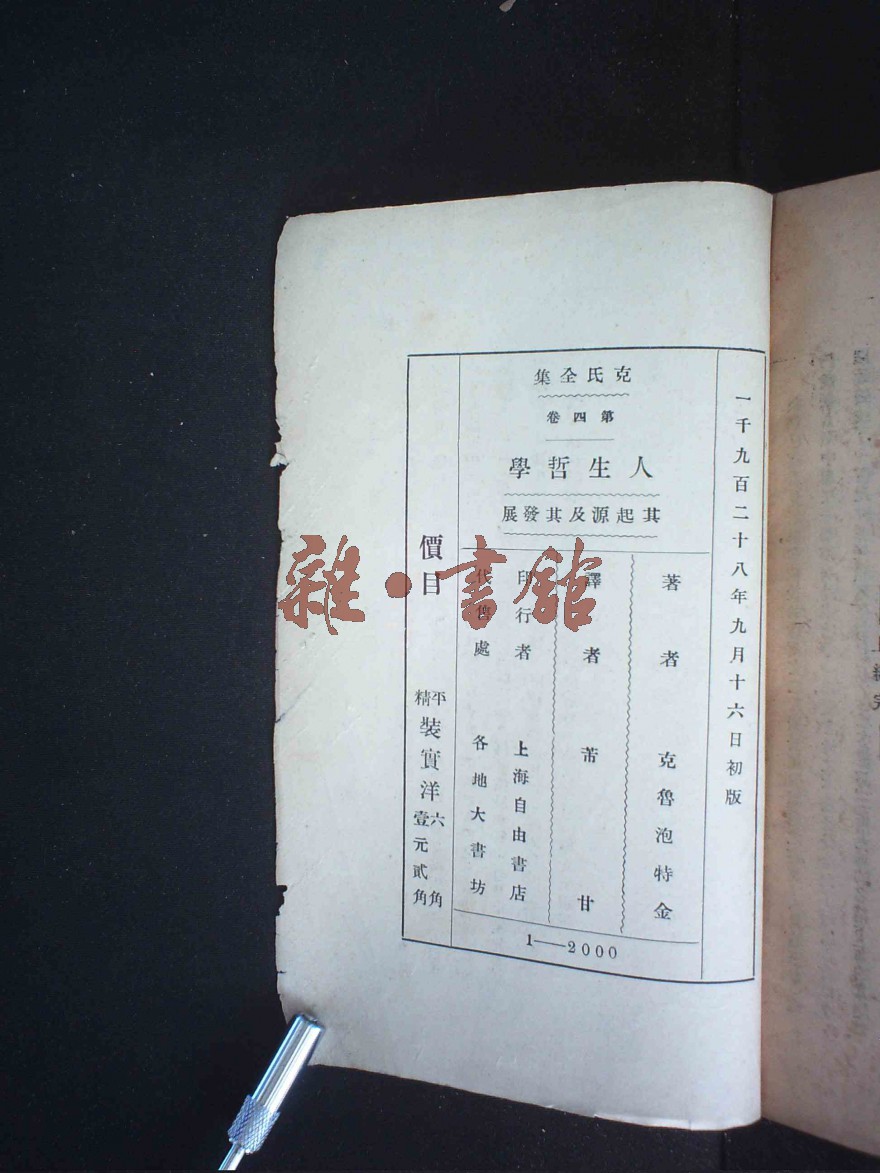 一千九百二十八年九月十六日初版
克氏全集
第四卷
人生哲學
其起源及其發展
著者 克魯泡特金
譯者 芾甘
印行者 上海自由書店
代售處 各地大書坊
1——2000
價目
平裝實洋六角
精裝實洋壹元貳角
雜·書館